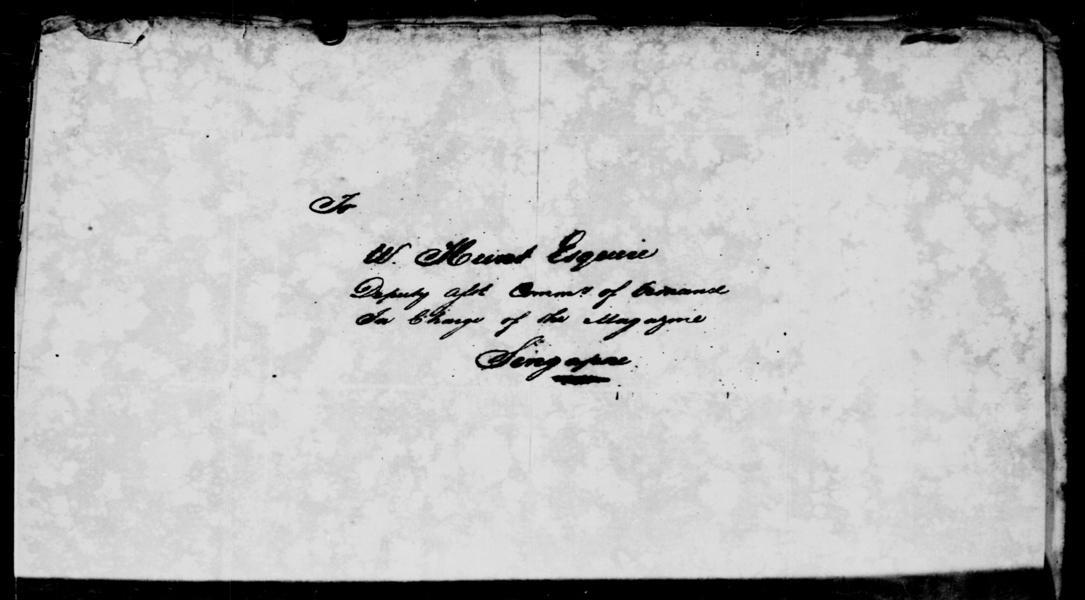 To
W. Hunt Esquire
Deputy Asst. Commy. of Ordnance
In Charge of the Magazine
Singapore